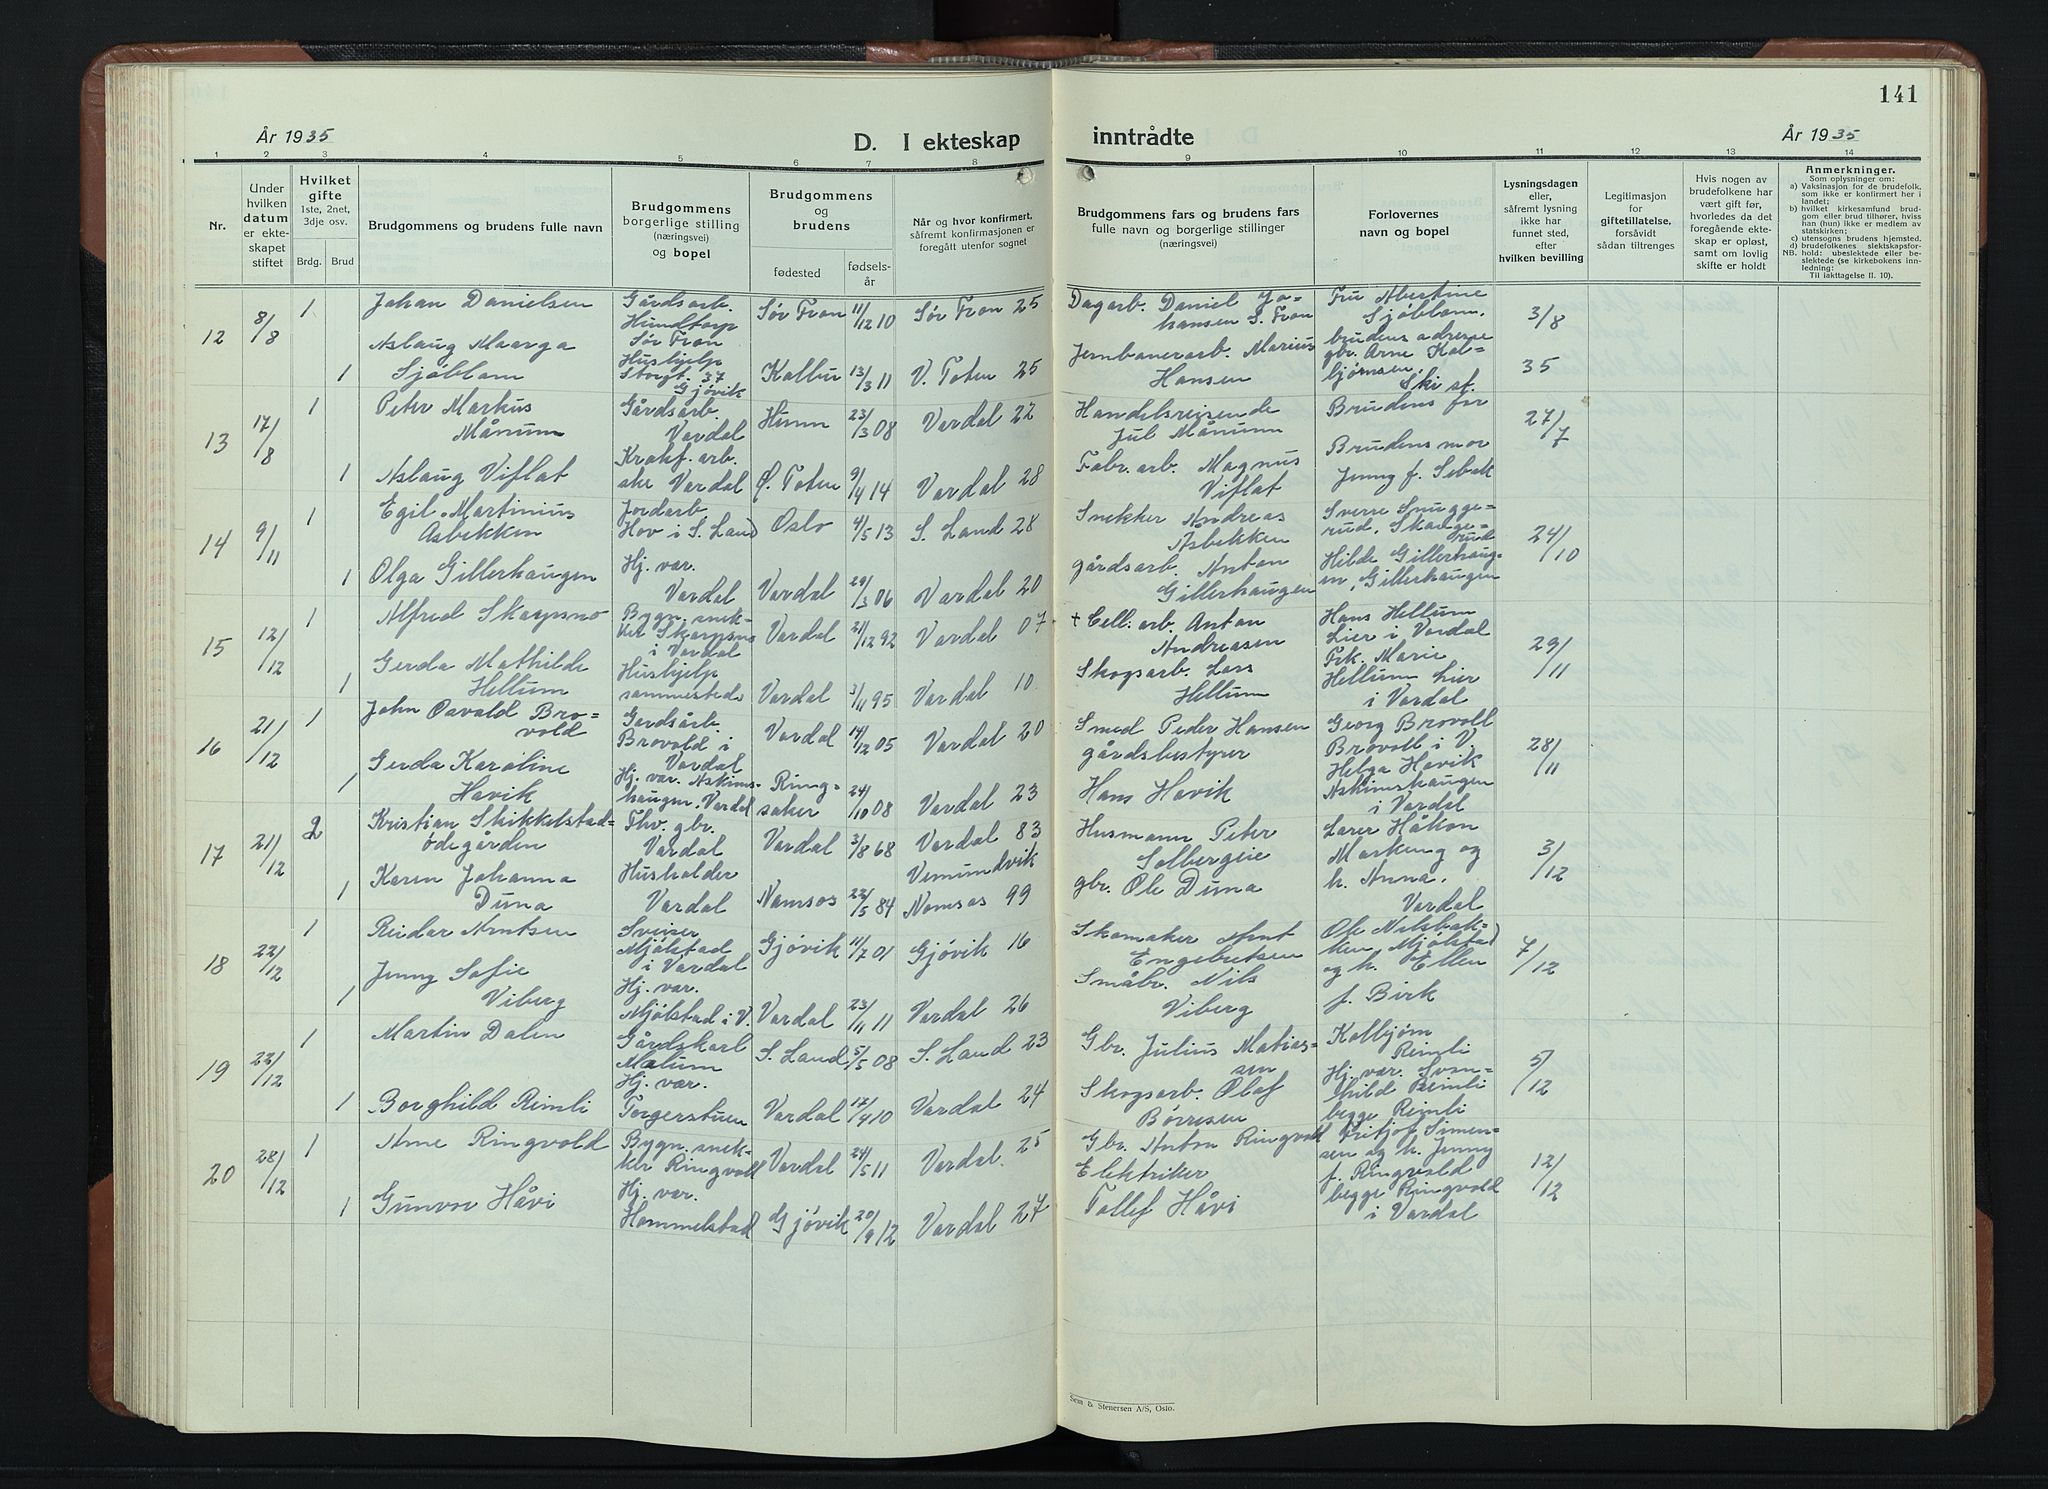 141
År 1935
D. I ekteskap inntrådte
År 1935
1 2 3 4 5 6 7 8 9 10 11 12 13 14
Nr.
Under hvilken datum er ekteskapet stiftet
Hvilket gifte
1ste, 2net, 3dje osv.
Brdg. Brud
Brudgommens og brudens fulle navn
Brudgommens borgerlige stilling (næringsvei) og bopel
Brudgommens og brudens
fødested
fødselsår
Når og hvor konfirmert, såfremt konfirmasjonen er foregått utenfor sognet
Brudgommens fars og brudens fars fulle navn og borgerlige stillinger (næringsvei)
Forlovernes navn og bopel
Lysningsdagen eller, såfremt lysning ikke har funnet sted, efter hvilken bevilling
Legitimasjon for giftetillatelse, forsåvidt sådan tiltrenges
Hvis nogen av brudefolkene har vært gift før, hvorledes da det foregående ekteskap er opløst, samt om lovlig skifte er holdt
Anmerkninger.
Som oplysninger om:
a) Vaksinasjon for de brudefolk, som ikke er konfirmert her i landet;
b) hvilket kirkesamfund brudgom eller brud tilhører, hviss han (hun) ikke er medlem av statskirken;
c) utensogns brudens hjemsted.
d) brudefolkenes slektskapsforhold: ubeslektede eller beslektede (se kirkebokens innledning:
NB.
Til iakttagelse II. 10).
12 8/8 1 Johan Danielsen Gårdsarb. Hundtorp Sør Fron Sør Fron 11/12 10 Sør Fron 25 Dagarb. Daniel Johansen S. Fron Fru Albertine Sjøblom, brudens adresse 3/8
1 Aslaug Maarga Sjøblom Hushjelp Storgt. 37 Gjøvik Kolbu 13/3 11 V. Toten 25 Jernbanearb. Marius Hansen gbr. Arne Kolbjørnsen, Ski st. 35
13 17/8 1 Peter Markus Månum Gårdsarb. Vardal Hunn 23/3 08 Vardal 22 Handelsreisende Jul Månum Brudens far 27/7
1 Aslaug Viflat Vardal Ø. Toten 9/4 14 Vardal 28 Fabr. arb. Magnus Viflat Brudens mor Jenny f. Sebak
14 9/11 1 Egil Martinius Asbekken Jordarb. Hov i S. Land Oslo 4/5 13 S. Land 28 Snekker Andreas Asbekken Sverre Snuggerud, 24/10
1 Olga Gillerhaugen Hj. var. Vardal Vardal 29/3 06 Vardal 20 gårdsarb. Anton Gillerhaugen Hilde Gillerhaugen, Gillerhaugen
15 12/12 1 Alfred Skarpsno Bygn. snekker Skarpsno i Vardal Vardal 21/12 92 Vardal 07 + Cell. arb. Anton Andreasen Hans Hellum Lier i Vardal 29/11
1 Gerda Mathilde Hellum Hushjelp sammesteds Vardal 3/11 95 Vardal 10. Skogsarb. Lars Hellum Frk. Marie Hellum Lier i Vardal
16 21/12 1 John Osvald Brovold Gårdsarb. Brovold i Vardal Vardal 14/12 05 Vardal 20 Smed Peder Hansen Georg Brovoll Brovoll i V. 28/11
1 Gerda Karoline Havik Hj. var. Askimshaugen, Vardal Ringsaker 24/10 08 Vardal 23 gårdsbestyrer Hans Havik Helga Havik Askimshaugen i Vardal
17 21/12 2 Kristian Skikkelstadødegården Fhv. gbr. Vardal Vardal 3/8 68 Vardal 83 Husmann Peter Solbergeie Lærer Håkon Markeng og 3/12
1 Karen Johanna Duna Husholder Vardal Namsos 22/5 84 Vemundvik Namsos 99 gbr. Ole Duna h. Anna. Vardal
18 22/12 1 Reidar Arntsen Sveiser Mjølstad i Vardal Gjøvik 11/7 01 Gjøvik 16 Skomaker Arnt Engebretsen Ole Nilsbakken, Mjølstad 7/12
1 Jenny Sofie Viberg Hj. var. Mjølstad i V. Vardal 23/11 11 Vardal 26 Småbr. Nils Viberg og h. Ellen f. Birk
19 22/12 1 Martin Dalen Gårdskarl S. Land 5/5 08 S. Land 23 Gbr. Julius Matiassen Kolbjørn Rimli 5/12
1 Borghild Rimli Hj. var. Torgerstuen Vardal 17/4 10 Vardal 24 Skogsarb. Olaf Børresen Hj. var. Svanhild Rimli begge Rimli
20 28/12 1 Arne Ringvold Bygn. snekker Ringvold Vardal 24/5 11 Vardal. 25 Gbr. Anton Ringvold Fritjof Simensen og h. Jenny 12/12
1 Gunvor Håvi Hj. var. Hammelstad Gjøvik 20/9 12 Vardal 27 Elektriker Tollef Håvi f. Ringvold begge Ringvold i Vardal
Sem & Stenersen A/S, Oslo.